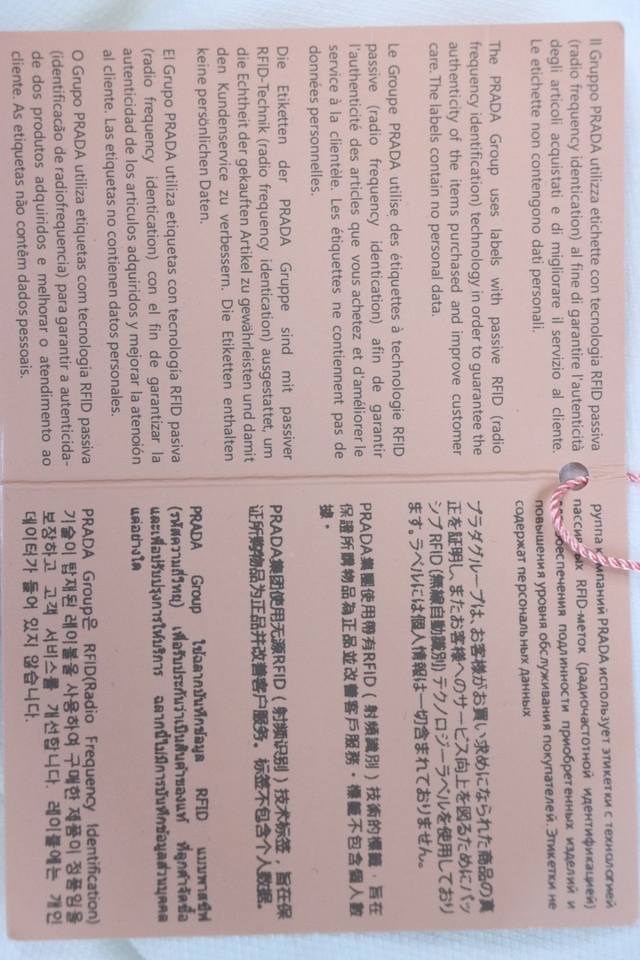 Il Gruppo PRADA utilizza etichette con tecnologia RFID passiva
(radio frequency identication) al fine di garantire l'autenticità
degli articoli acquistati e di migliorare il servizio al cliente.
Le etichette non contengono dati personali.
The PRADA Group uses labels with passive RFID (radio
frequency identification) technology in order to guarantee the
authenticity of the items purchased and improve customer
care. The labels contain no personal data.
Le Groupe PRADA utilise des étiquettes à technologie RFID
passive (radio frequency identication) afin de garantir
l'authenticité des articles que vous achetez et d'améliorer le
service à la clientèle. Les étiquettes ne contiennent pas de
données personnelles.
Die Etiketten der PRADA Gruppe sind mit passiver
RFID-Technik (radio frequency identication) ausgestattet, um
die Echtheit der gekauften Artikel zu gewährleisten und damit
den Kundenservice zu verbessern. Die Etiketten enthalten
keine persönlichen Daten.
El Grupo PRADA utiliza etiquetas con tecnologia RFID pasiva
(radio frequency identication) con el fin de garantizar la
autenticidad de los articulos adquiridos y mejorar la atenoión
al cliente. Las etiquetas no contienen datos personales.
O Grupo PRADA utiliza etiquetas com tecnologia RFID passiva
(identificacão de radiofrequencia) para garantir a autenticida-
de dos produtos adquiridos e melhorar o atendimento ao
cliente. As etiquetas não contêm dados pessoais.
руппа компаний PRADA использует этикетки с технологией
пассивных RFID-меток (радиочастотной идентификацией)
обеспечения подлинности приобретенных изделий и
повышения уровня обслуживания покупателей. Этикетки не
содержат персональных данных
プラダグループは、お客様がお買い求めになられた商品の真
正を証明し、またお客様へのサービス向上を図るためにパッ
シブRFID(無線自動識別)テクノロジーラベルを使用しており
ます。ラベルには個人情報は一切含まれておりません。
PRADA集團使用帶有RFID(射頻識別)技術的標籤,旨在
保證所購物品為正品並改善客戶服務。標籤不包含個人數
據。
PRADA集团使用无源RFID(射频识别)技术标签,旨在保
证所购物品为正品并改善客户服务。标签不包含个人数据。
PRADA Group ใช้ฉลากบันทึกข้อมูล RFID แบบพาสซีฟ
(รหัสความถี่วิทยุ) เพื่อรับประกันว่าเป็นสินค้าของแท้ ที่ลูกค้าจัดซื้อ
และเพื่อปรับปรุงการให้บริการ ฉลากนี้ไม่มีการบันทึกข้อมูลส่วนบุคคล
แต่อย่างใด
PRADA Group은 RFID(Radio Frequency Identification)
기술이 탑재된 레이블을 사용하여 구매한 제품이 정품임을
보장하고 고객 서비스를 개선합니다. 레이블에는 개인
데이터가 들어 있지 않습니다.